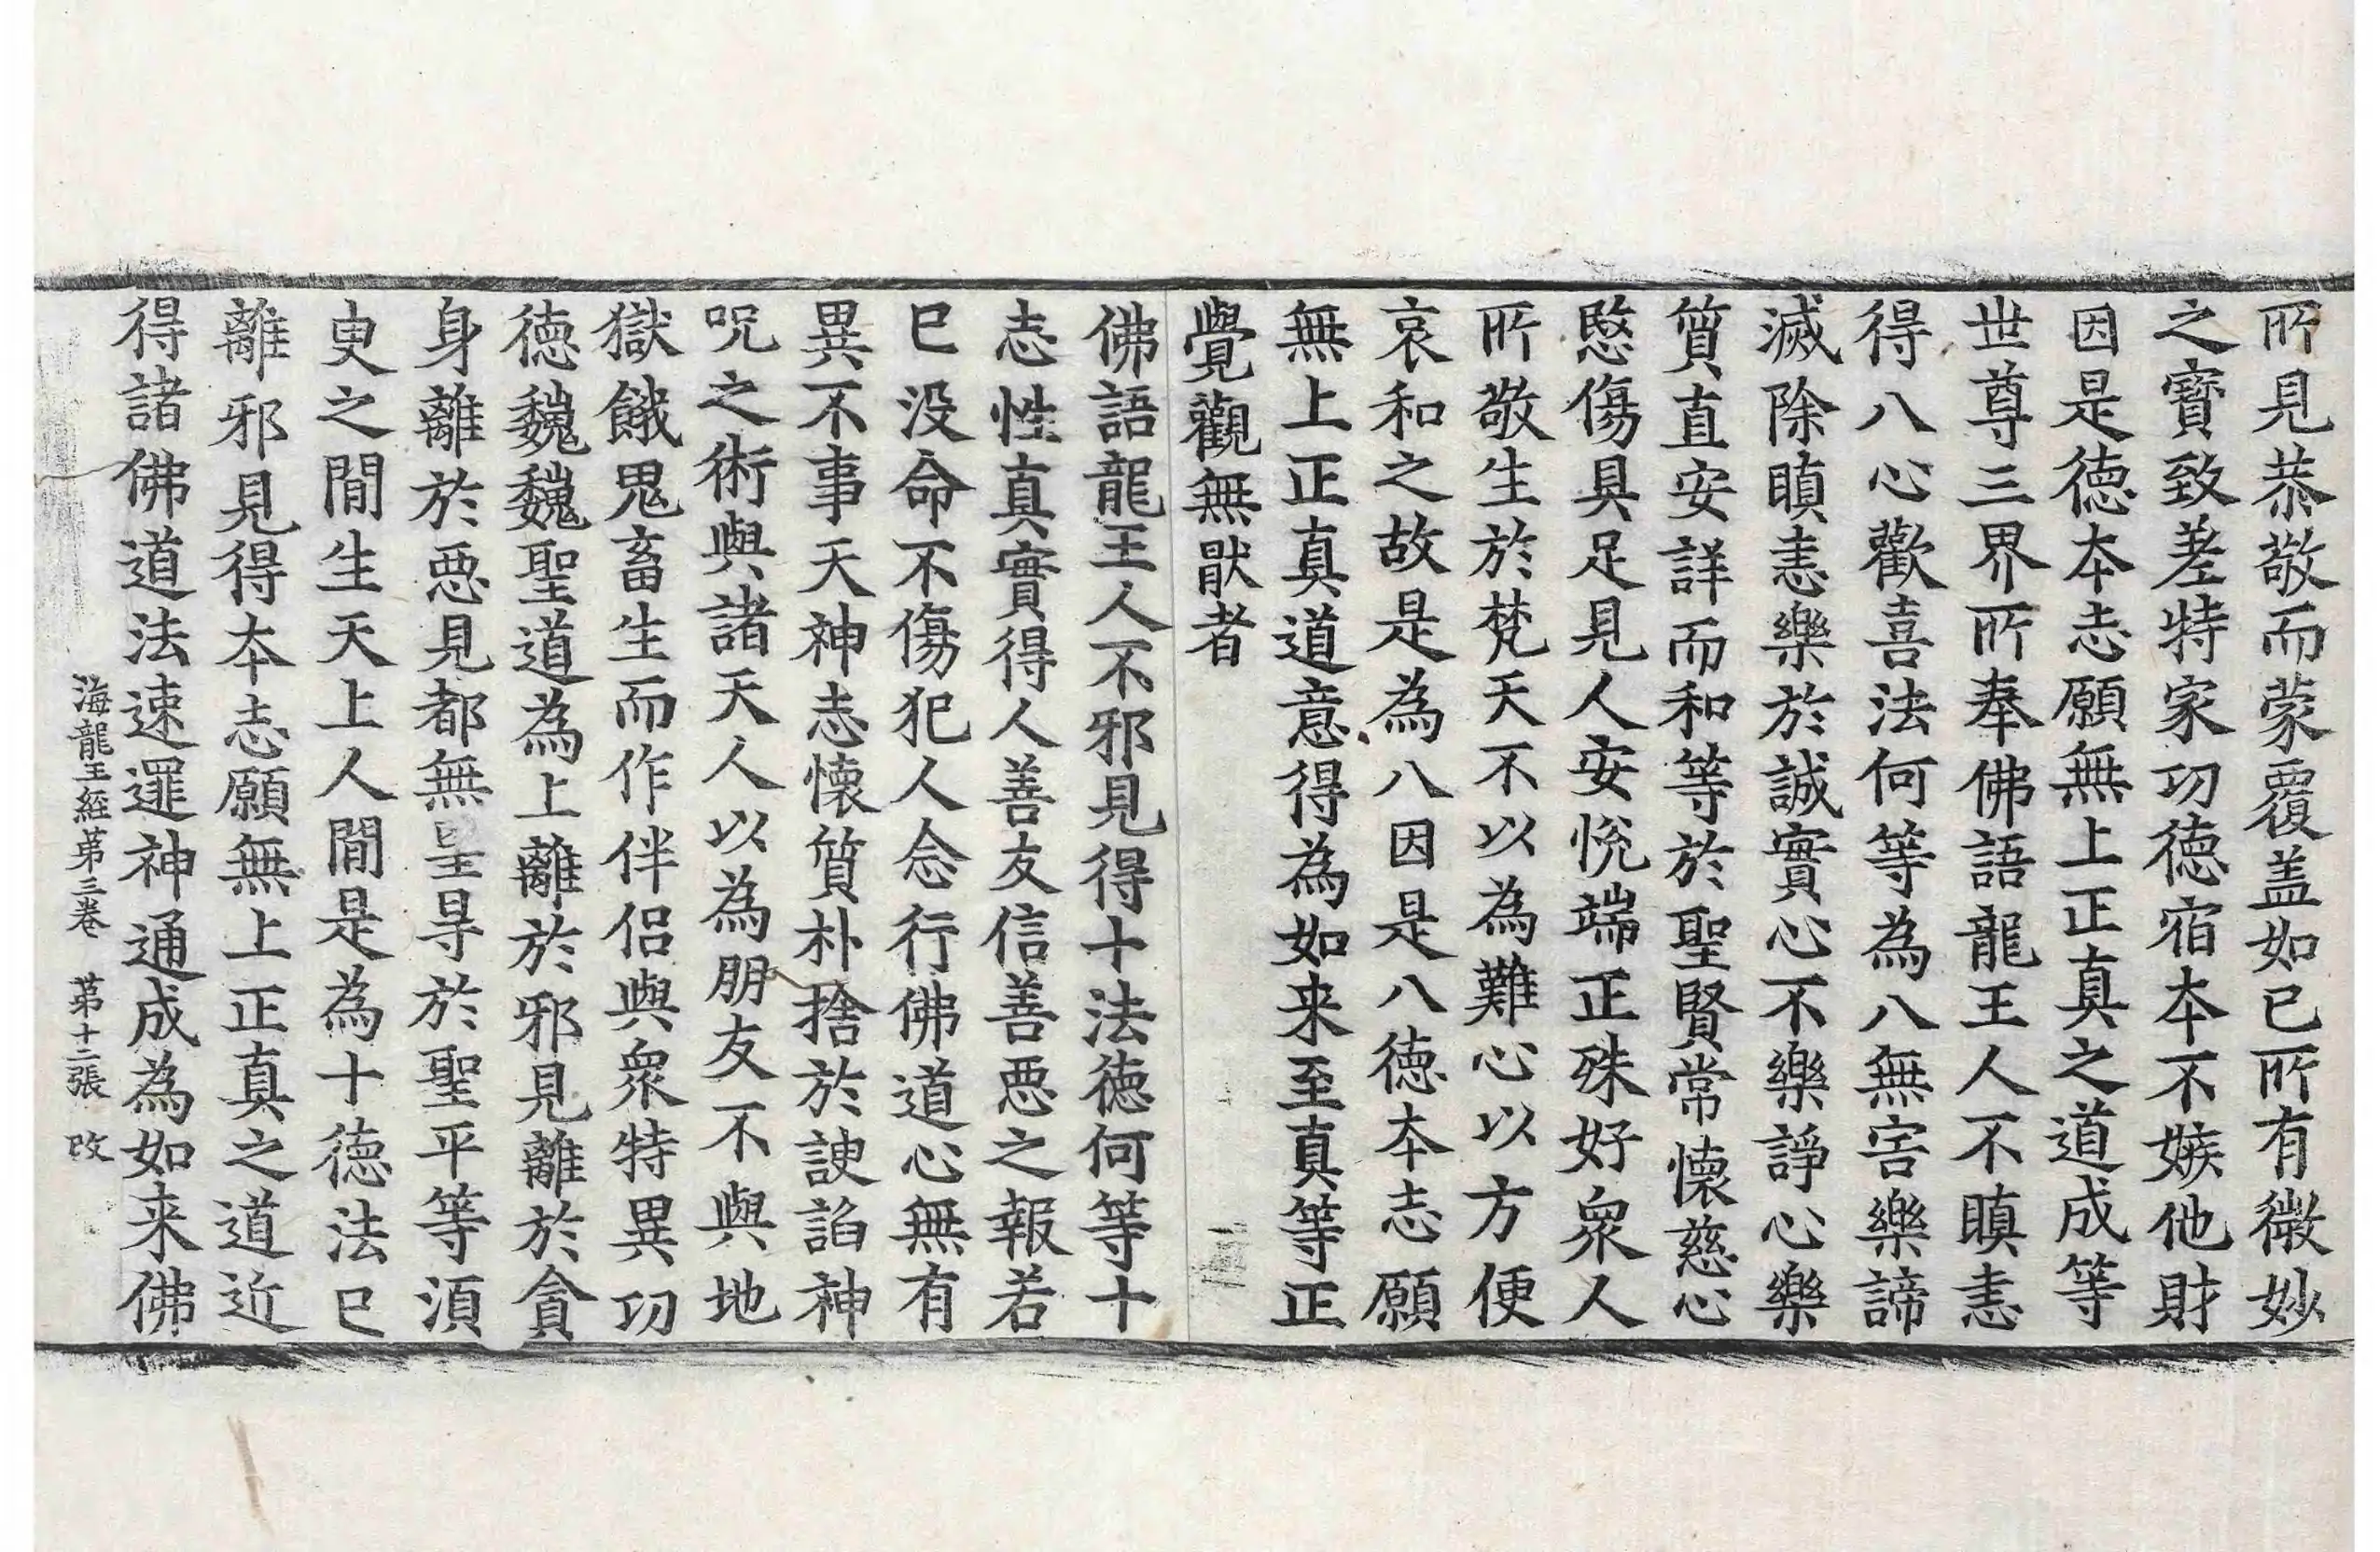 所見恭敬而蒙覆盖如已所有微妙
之寶致差特家功德宿本不嫉他財
因是德本志願無上正真之道成等
世尊三界所奉佛語龍王人不瞋恚
得八心歡喜法何等為八無害樂諦
滅除瞋恚樂於誠實心不樂諍心樂
質直安詳而和等於聖賢常懷慈心
愍傷具足見人安悅端正殊好衆人
所敬生於梵天不以為難心以方便
哀和之故是為八因是八德本志願
無上正真道意得為如来至真等正
覺觀無猒者
佛語龍王人不邪見得十法德何等十
志性真實得人善友信善惡之報若
已没命不傷犯人念行佛道心無有
異不事天神志懷質朴捨於諛諂神
呪之術與諸天人以為朋友不與地
獄餓鬼畜生而作伴侶與衆特異功
德巍巍聖道為上離於邪見離於貪
身離於惡見都無罣㝵於聖平等須
臾之間生天上人間是為十德法已
離邪見得本志願無上正真之道近
得諸佛道法速遝神通成為如来佛
海龍王經第三卷　第十二張　改